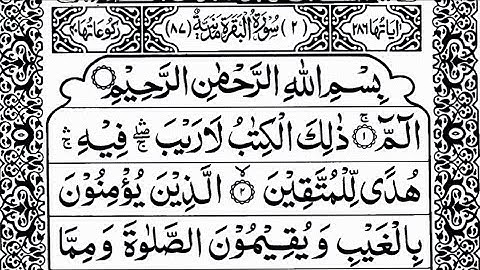 اٰیَاتُهَا ٢٨٦ (٢) سُوْرَةُ الْبَقَرَةِ مَدَنِيَّةٌ (٨٧) رُكُوْعَاتُهَا ٤٠
بِسْمِ اللهِ الرَّحْمٰنِ الرَّحِيْمِ
الٓمّٓ ۚ﴿١﴾ ذٰلِكَ الْكِتٰبُ لَا رَيْبَ ۛۖ فِيْهِ ۛۚ
هُدًى لِّلْمُتَّقِيْنَ ۙ﴿٢﴾ الَّذِيْنَ يُؤْمِنُوْنَ
بِالْغَيْبِ وَ يُقِيْمُوْنَ الصَّلٰوةَ وَ مِمَّا